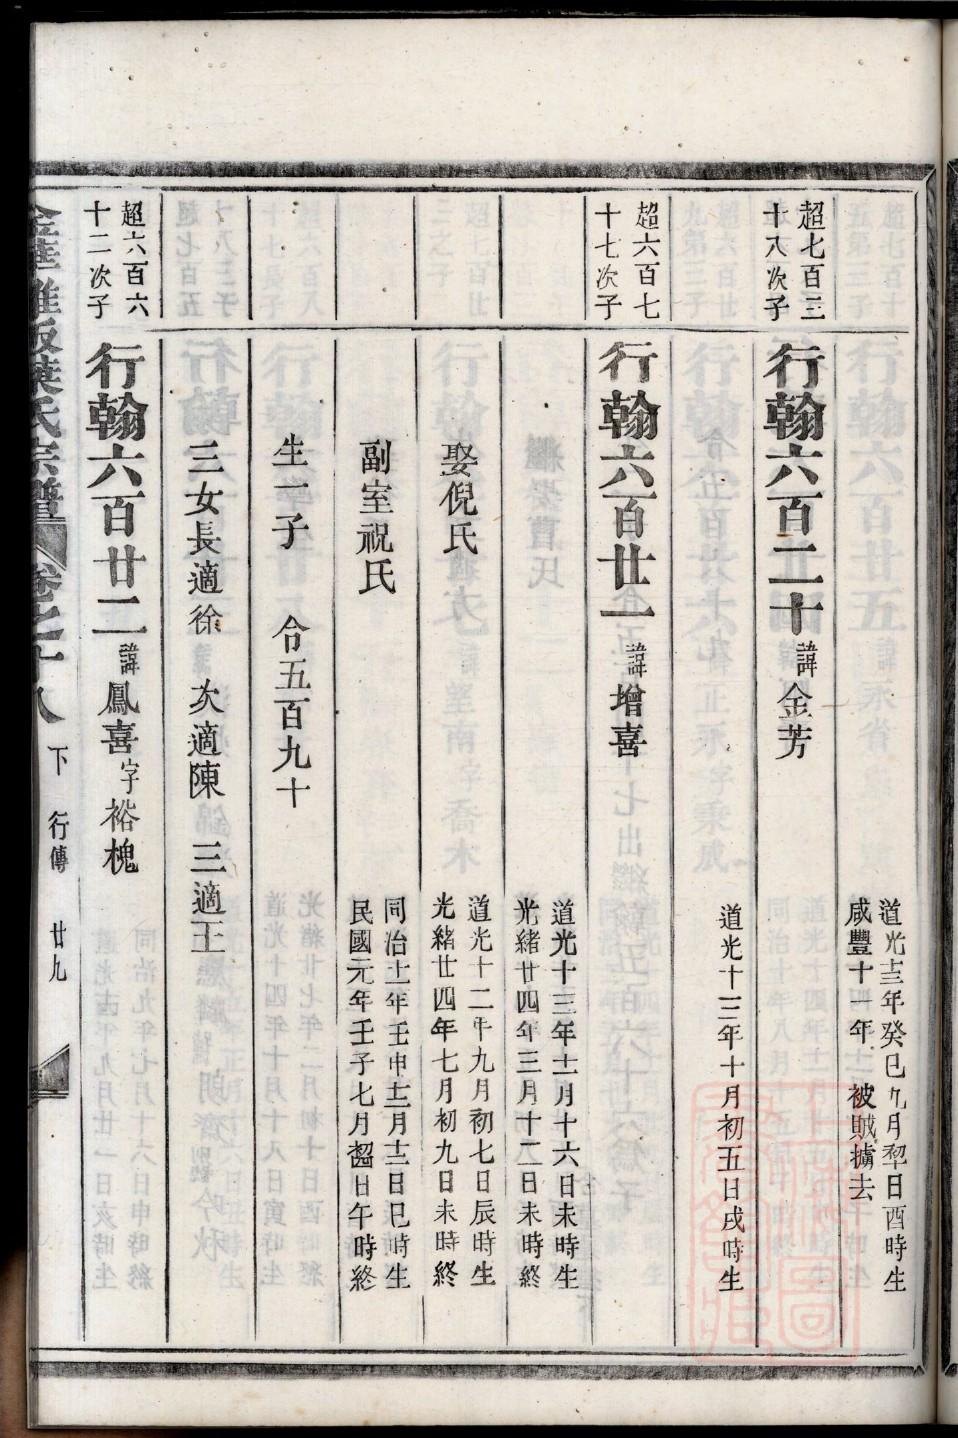 超七百三
十八次子
行翰六百二十諱金芳
道光十三年癸巳九月初日酉時生
咸豐十一年 被賊擄去
道光十三年十月初五日戌時生
超六百七
十七次子
行翰六百廿一諱增喜
道光十三年十一月十六日未時生
光緒廿四年三月十二日未時終
娶倪氏
道光十二年九月初七日辰時生
光緒廿四年七月初九日未時終
副室祝氏
同治十一年壬申十二月十三日巳時生
民國元年壬子七月初日午時終
生一子 合五百九十
三女長適徐 次適陳 三適王
超六百六
十二次子
行翰六百廿二諱鳳喜字裕槐
葉氏宗譜 卷之十八 下 行傳 廿九